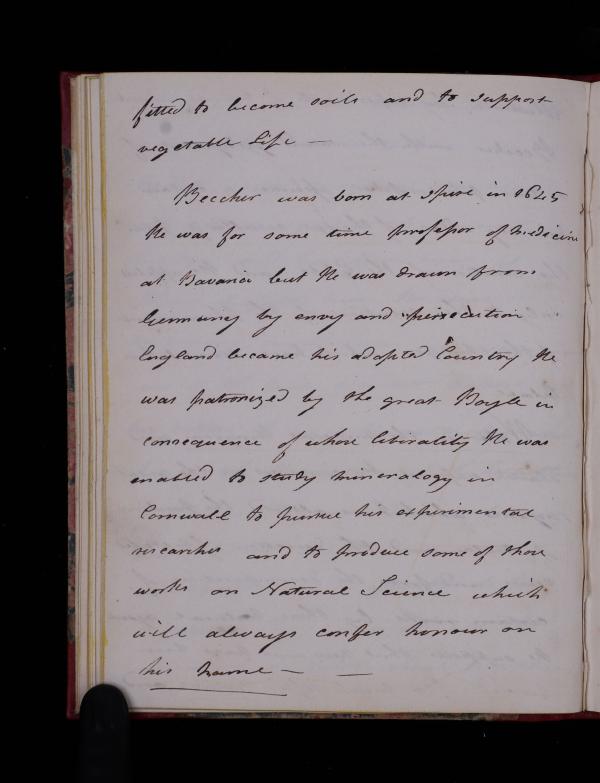 fitted to become soils and to support
vegetable Life —
Beccher was born at Spire in 1645
He was for some time professor of medicine
at Bavaria but He was drawn from
Germany by envy and persecution
England became his adopted Country He
was patronized by the great Boyle in
consequence of whose liberality He was
enabled to study mineralogy in
Cornwall to pursue his experimental
researches and to produce some of those
works on Natural Science which
will always confer honour on
his name — —